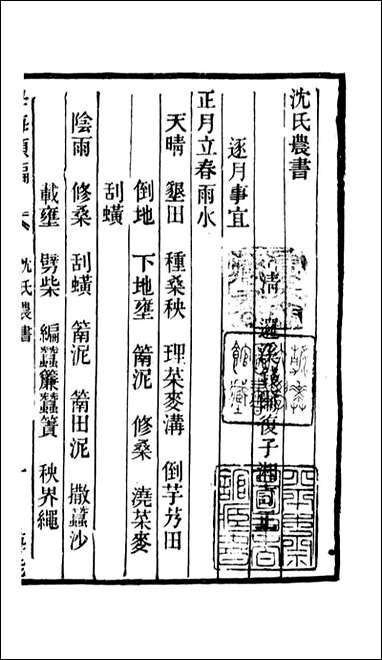 沈氏農書
清
復子
逐月事宜
正月立春雨水
天晴 墾田 種桑秧 理菜麥溝 倒芋艿田
倒地 下地壅 罱泥 修桑 澆菜麥
刮蟥
陰雨 修桑 刮蟥 罱泥 罱田泥 撒蠶沙
載壅 劈柴 編蠶簾蠶簀 秧界繩
沈氏農書 一